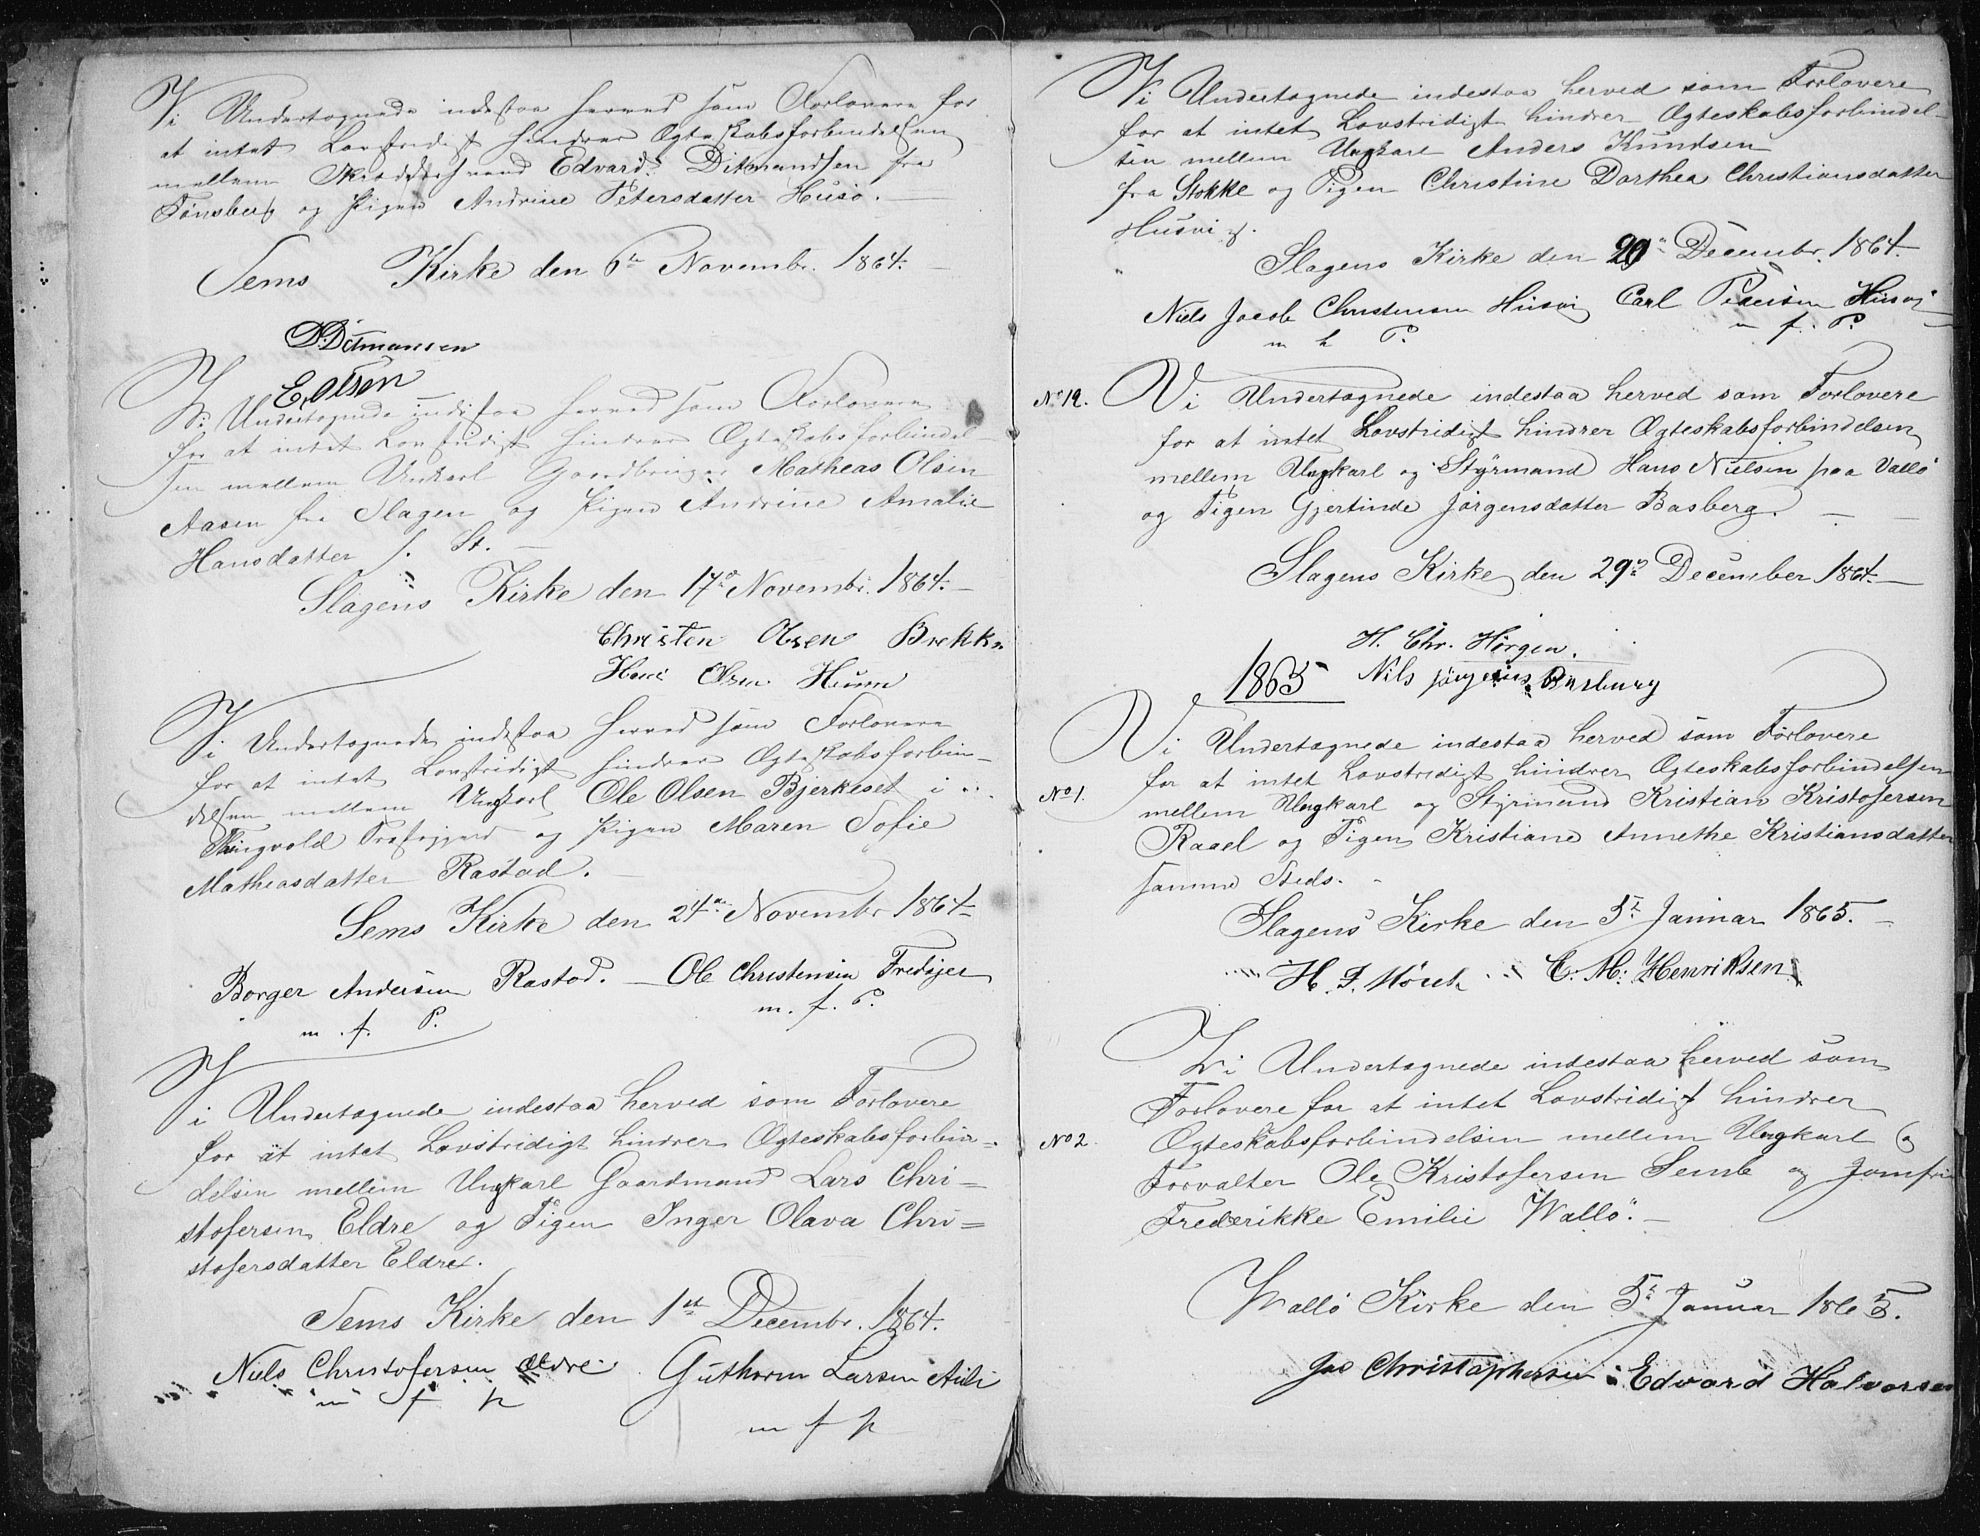 Vi Undertegnede indestaa herved som Forlovere for
at intet Lovstridigt hindrer Ægteskabsforbindelsen
mellem Skræddersvend Edvard Ditmandsen fra
Tønsberg og Pigen Andrine Petersdatter Husø.
Sems Kirke den 6te Novembr. 1864.
D. Ditmansen
E. Olsen
Vi Undertegnede indestaa herved som Forlovere
for at intet Lovstridigt hindrer Ægteskabsforbindel
sen mellem Unkarl Gaardbruger Matheas Olsen
Aasen fra Slagen og Pigen Andrine Amalie
Hansdatter s. St.
Slagens Kirke den 17de Novembr. 1864.
Christen Olsen Brekke
Hans Olsen Heum
Vi Undertegnede indestaa herved som Forlovere
for at intet Lovstridigt hindrer Ægteskabsforbin-
delsen mellem Ungkarl Ole Olsen Bjerkeset i
Thingvold Præstegjæld og Pigen Maren Sofie
Matheasdatter Rastad.
Sems Kirke den 24de Novembr 1864
Borger Andersen Rastad. Ole Christensen Tredsjer
m. f. P. m. f. P.
Vi Undertegnede indestaa herved som Forlovere
for at intet Lovstridigt hindrer Ægteskabsforbin-
delsen mellem Ungkarl Gaardmand Lars Chri=
stofersen Eldre og Pigen Inger Olava Chri=
stofersdatter Eldre.
Sems Kirke den 1ste Decembr. 1864.
Niels Christofersen Eldre Guthorm Larsen Auli
m f p
m f p
Vi Undertegnede indestaa herved som Forlovere
for at intet Lovstridigt hindrer Ægteskabsforbindel-
sen mellem Ungkarl Anders Knudsen
fra Stokke og Pigen Christine Dorthea Christiansdatter
Husvig.
Slagens Kirke den 29de Decembr. 1864.
Niels Jacob Christensen Husvi Carl Pedersen Husvi
m h P. m. f. P.
No 12. Vi Undertegnede indestaa herved som Forlovere
for at intet Lovstridigt hindrer Ægteskabsforbindelsen
mellem Ungkarl og Styrmand Hans Nielsen paa Vallø
og Pigen Gjertinde Jørgensdatter Basberg.
Slagens Kirke den 29de December 1864.
H. Chr. Hørgen.
1865 Nils Jörgens Basburg
Vi Undertegnede indestaa herved som Forlovere
for at intet Lovstridigt hindrer Ægteskabsforbindelsen
No 1. mellem Ungkarl og Styrmand Kristian Kristofersen
Raael og Pigen Kristiane Annethe Kristiansdatter
samme Steds.
Slagens Kirke den 5te Januar 1865.
H. F. Mörch C. M. Henriksen
Vi Undertegnede indestaa herved som
Forlovere for at intet Lovstridigt hindrer
No 2 Ægteskabsforbindelsen mellem Ungkarl og
Forvalter Ole Kristofersen Semb og Jomfru
Frederikke Emilie Wallø.
Wallø Kirke den 5te Januar 1865.
Jas Christophersen Edvard Halvorsen